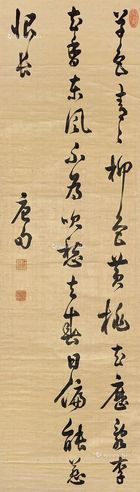 草色青々柳色黃桃花歷亂李
花香東風不為吹愁去春日偏能惹
恨長